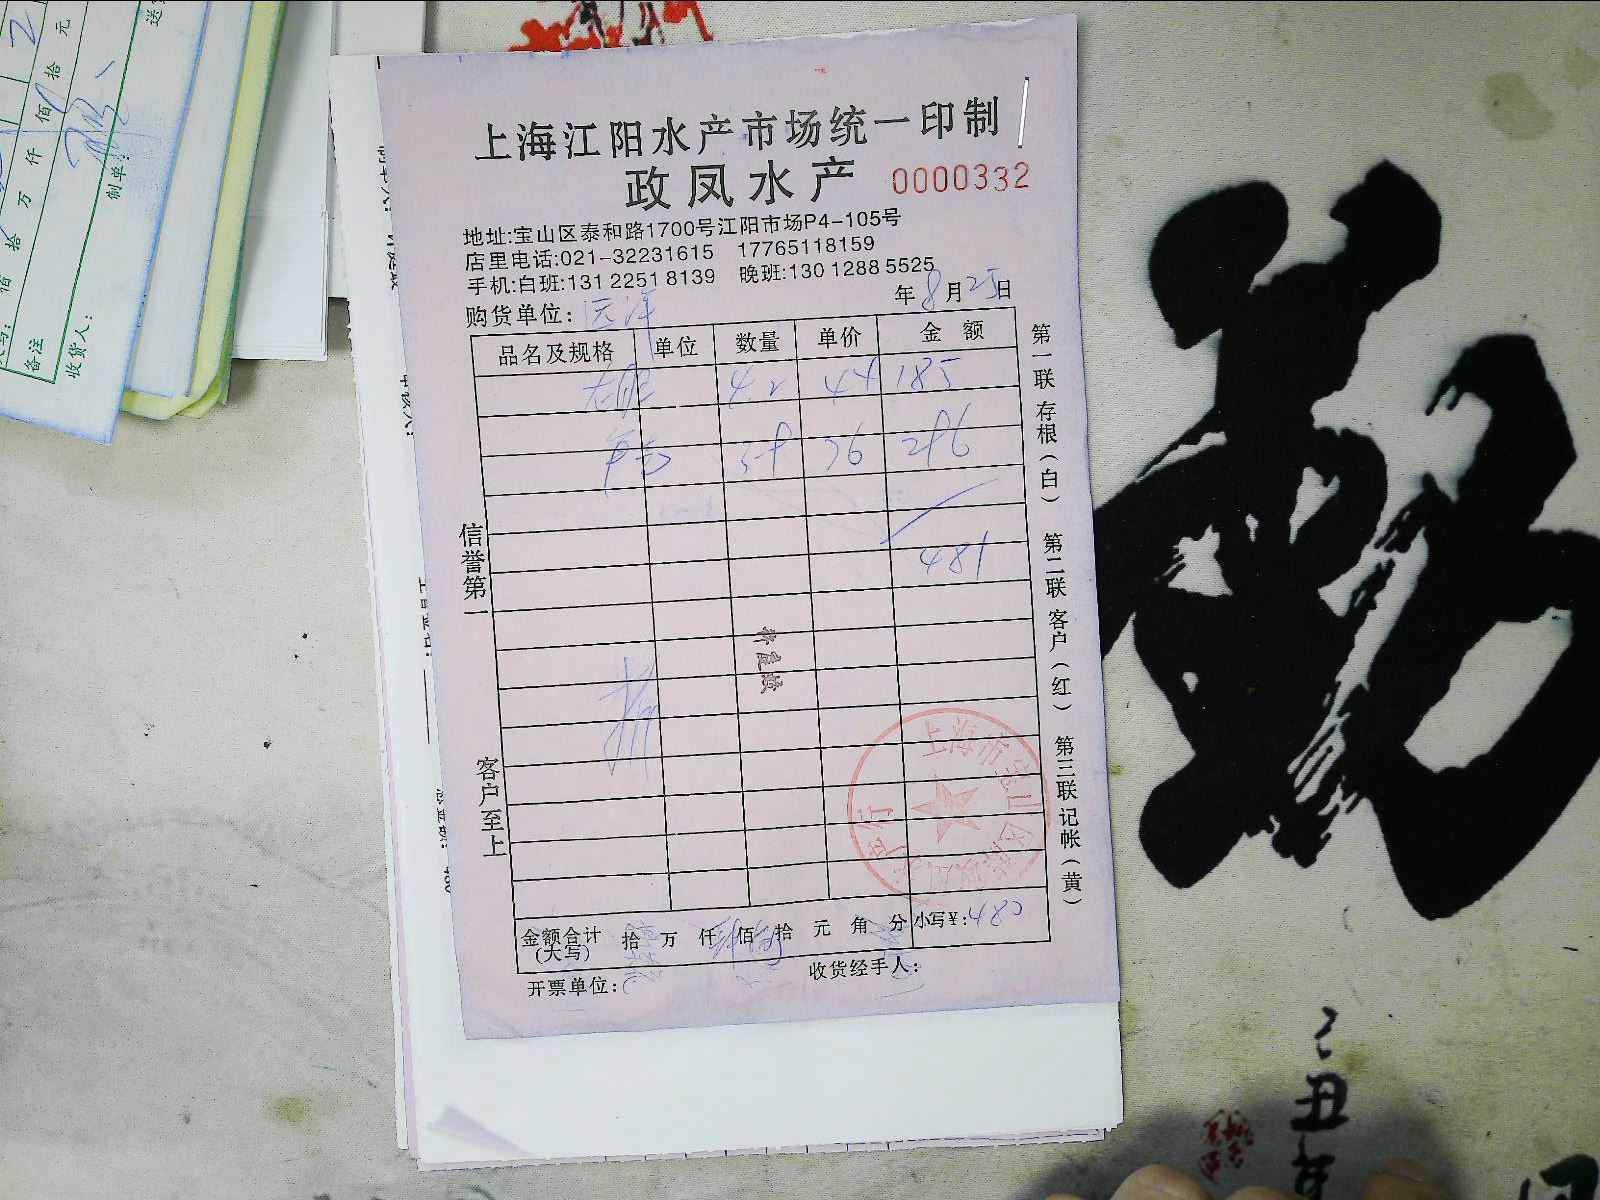 上海江阳水产市场统一印制
政凤水产 0000332
地址:宝山区泰和路1700号江阳市场P4-105号
店里电话:021-32231615 17765118159
手机:白班:131 2251 8139 晚班:130 1288 5525
购货单位: 年8月25日
品名及规格 单位 数量 单价 金额
4.2 44 185
36
481
信誉第一
客户至上
第一联 存根(白) 第二联 客户(红) 第三联 记帐(黄)
金额合计(大写) 拾 万 仟 佰 拾 元 角 分 小写¥:480
开票单位: 收货经手人:
备注
收货人:
制单:
佰 拾 万 仟 佰 拾 元